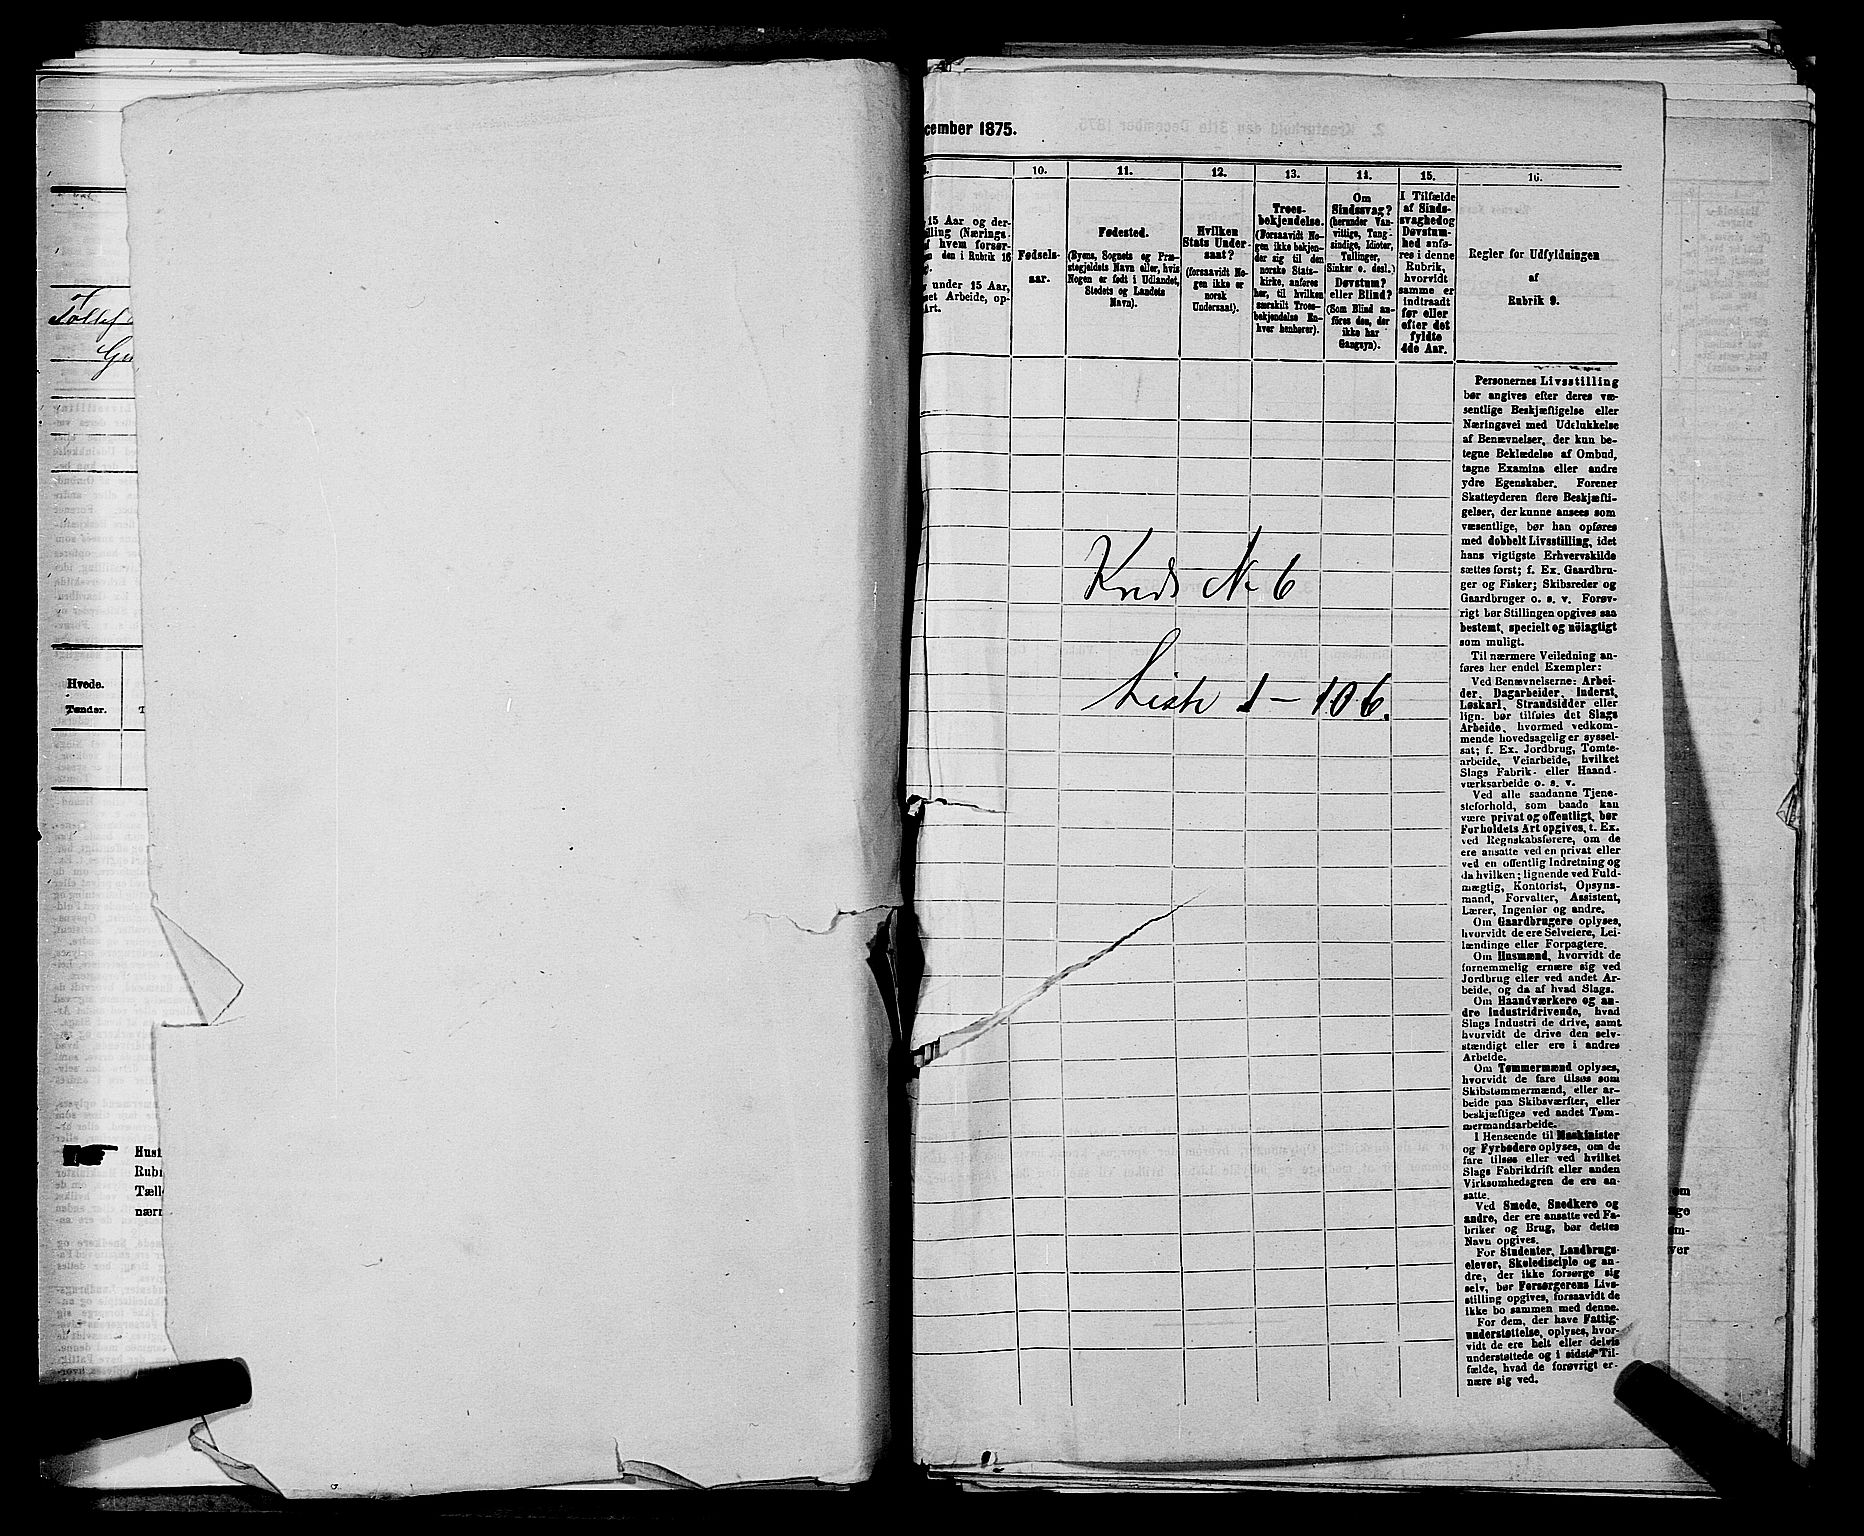 Tollef
Hvede.
Tønder.
Husf
Rubr
Tælle
nærm
cember 1875.
10.
11.
12.
13.
14.
15.
16.
15 Aar og der-
illing (Nærings
hvem forsør-
den i Rubrik 16
under 15 Aar,
set Arbeide, op-
Art.
Fødsels-
aar.
Fødested.
(Byens, Sognets og Præ-
stegjeldets Navn eller, hvis
Nogen er født i Udlandet,
Stedets og Landets
Navn).
Hvilken
Stats Under-
saat?
(forsaavidt No-
gen ikke er
norsk
Undersaat).
Troes-
bekjendelse.
(Forsaavidt No-
gen ikke bekjen-
der sig til den
norske Stats-
kirke, anføres
her, til hvilken
særskilt Troes-
bekjendelse En-
hver henhører).
Om
Sindssvag?
(herunder Van-
vittige, Tung-
sindige, Idioter,
Tullinger,
Sinker o. desl.)
Døvstum?
eller Blind?
(Som Blind an-
føres den, der
ikke har
Gangsyn).
I Tilfælde
af Sinds-
svaghed og
Døvstum-
hed anfø-
res i denne
Rubrik,
hvorvidt
samme er
indtraadt
før eller
efter det
fyldte
4de Aar.
Regler for Udfyldningen
af
Rubrik 9.
Kreds No 6
Liste 1 – 106.
Personernes Livsstilling
bør angives efter deres væ-
sentlige Beskjæftigelse eller
Næringsvei med Udelukkelse
af Benævnelser, der kun be-
tegne Beklædelse af Ombud,
tagne Examina eller andre
ydre Egenskaber. Forener
Skatteyderen flere Beskjæfti-
gelser, der kunne ansees som
væsentlige, bør han opføres
med dobbelt Livsstilling, idet
hans vigtigste Erhvervskilde
sættes først; f. Ex. Gaardbru-
ger og Fisker; Skibsreder og
Gaardbruger o. s. v. Forøv-
rigt bør Stillingen opgives saa
bestemt, specielt og nöiagtigt
som muligt.
Til nærmere Veiledning an-
føres her endel Exempler:
Ved Benævnelserne: Arbei-
der, Dagarbeider, Inderst,
Løskarl, Strandsidder eller
lign. bør tilføies det Slags
Arbeide, hvormed vedkom-
mende hovedsagelig er syssel-
sat; f. Ex. Jordbrug, Tomte-
arbeide, Veiarbeide, hvilket
Slags Fabrik- eller Haand-
værksarbeide o. s. v.
Ved alle saadanne Tjene-
steforhold, som baade kan
være privat og offentligt, bør
Forholdets Art opgives, t. Ex.
ved Regnskabsførere, om de
ere ansatte ved en privat eller
ved en offentlig Indretning og
da hvilken; lignende ved Fuld-
mægtig, Kontorist, Opsyns-
mand, Forvalter, Assistent,
Lærer, Ingeniør og andre.
Om Gaardbrugere oplyses,
hvorvidt de ere Selveiere, Lei-
lændinge eller Forpagtere.
Om Husmænd, hvorvidt de
fornemmelig ernære sig ved
Jordbrug eller ved andet Ar-
beide, og da af hvad Slags.
Om Haandværkere og an-
dre Industridrivende, hvad
Slags Industri de drive, samt
hvorvidt de drive den selv-
stændigt eller ere i andres
Arbeide.
Om Tømmermænd oplyses,
hvorvidt de fare tilsøs som
Skibstømmermænd, eller ar-
beide paa Skibsværfter, eller
beskjæftiges ved andet Tøm-
mermandsarbeide.
I Henseende til Maskinister
og Fyrbødere oplyses, om de
fare tilsøs eller ved hvilket
Slags Fabrikdrift eller anden
Virksomhedsgren de ere an-
satte.
Ved Smede, Snedkere og
andre, der ere ansatte ved Fa-
briker og Brug, bør dettes
Navn opgives.
For Studenter, Landbrugs-
elever, Skoledisciple og an-
dre, der ikke forsørge sig
selv, bør Forsørgerens Livs-
stilling opgives, forsaavidt de
ikke bo sammen med denne.
For dem, der have Fattig-
understøttelse, oplyses, hvor-
vidt de ere helt eller delvis
understøttede og i sidste Til-
fælde, hvad de forøvrigt er-
nære sig ved.